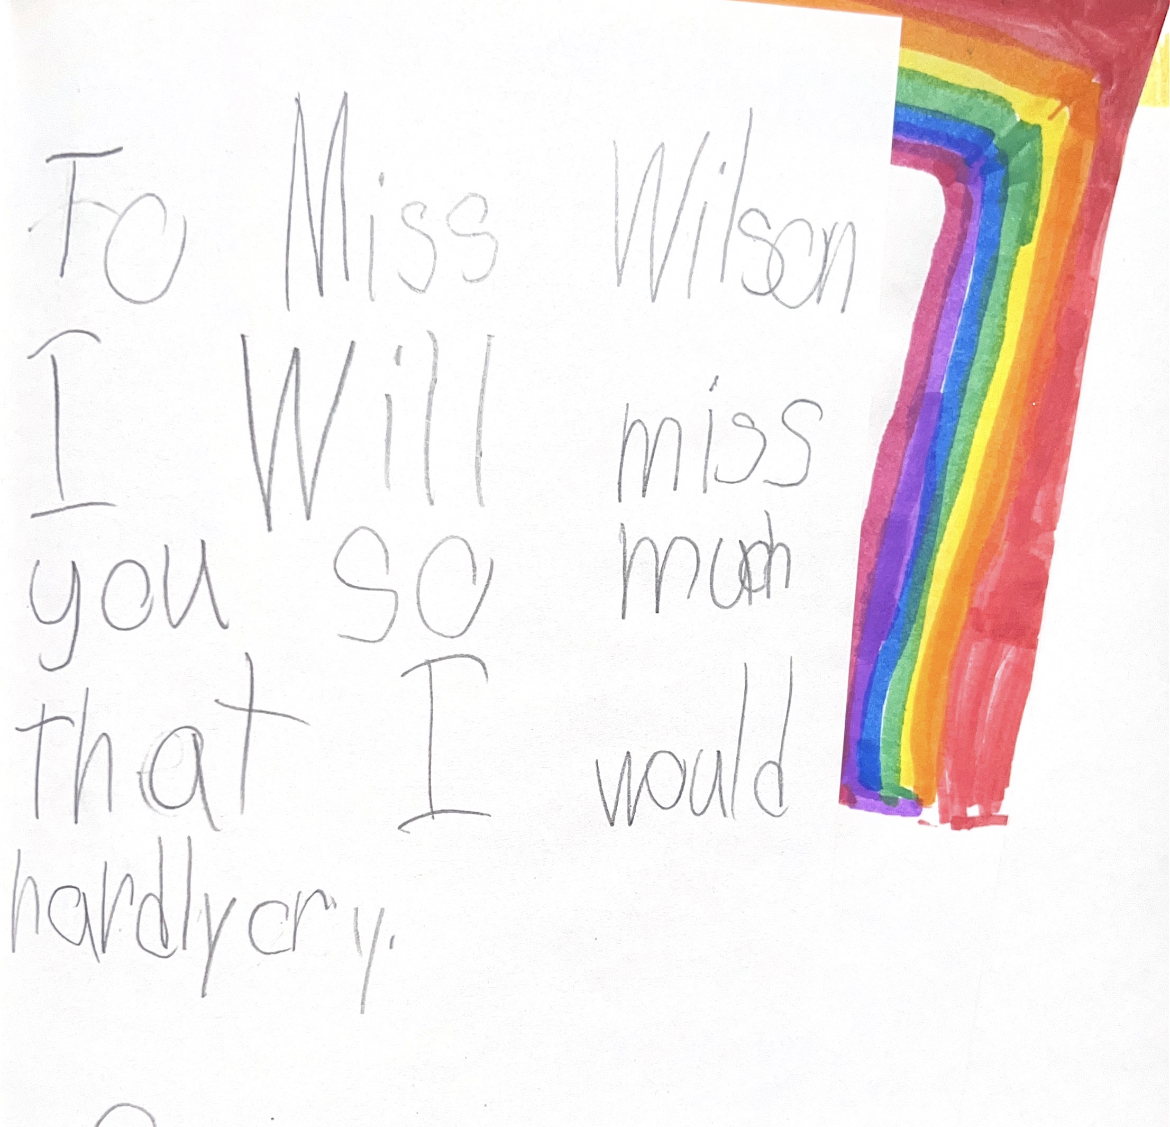 To Miss Wilson
I Will miss
you so much
that I would
hardly cry.